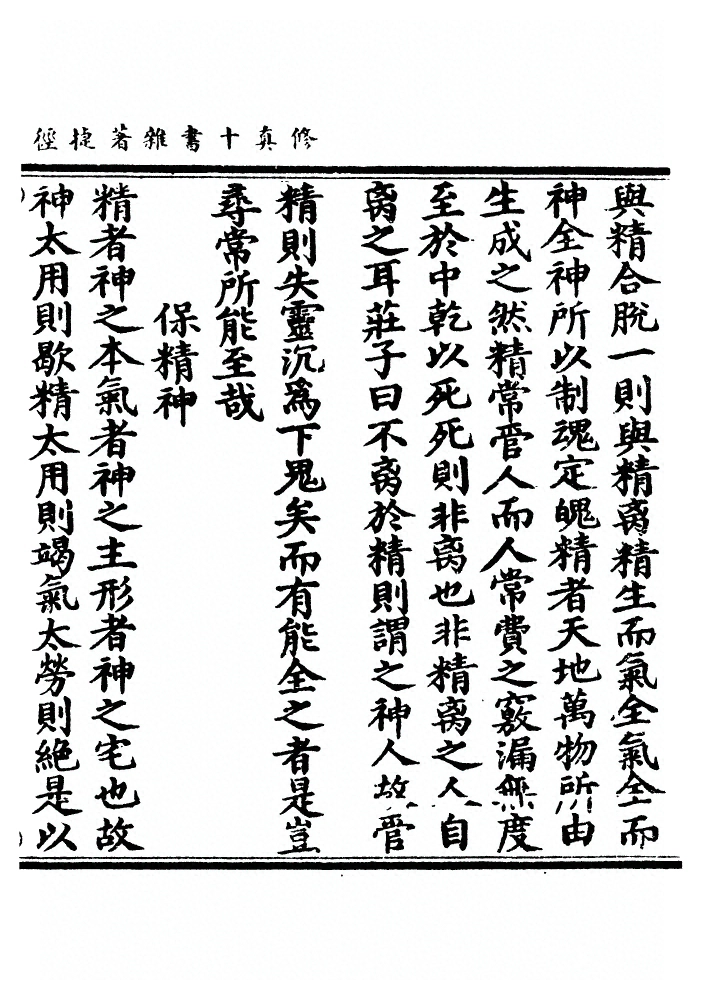 修真十書雜著捷徑
與精合脫一則與精离精生而氣全氣全而
神全神所以制魂定魄精者天地萬物所由
生成之然精常嗇人而人常費之竅漏無度
至於中乾以死死則非离也非精离之人自
离之耳莊子曰不离於精則謂之神人故嗇
精則失靈沉為下鬼矣而有能全之者是豈
尋常所能至哉
保精神
精者神之本氣者神之主形者神之宅也故
神太用則歇精太用則竭氣太勞則絶是以